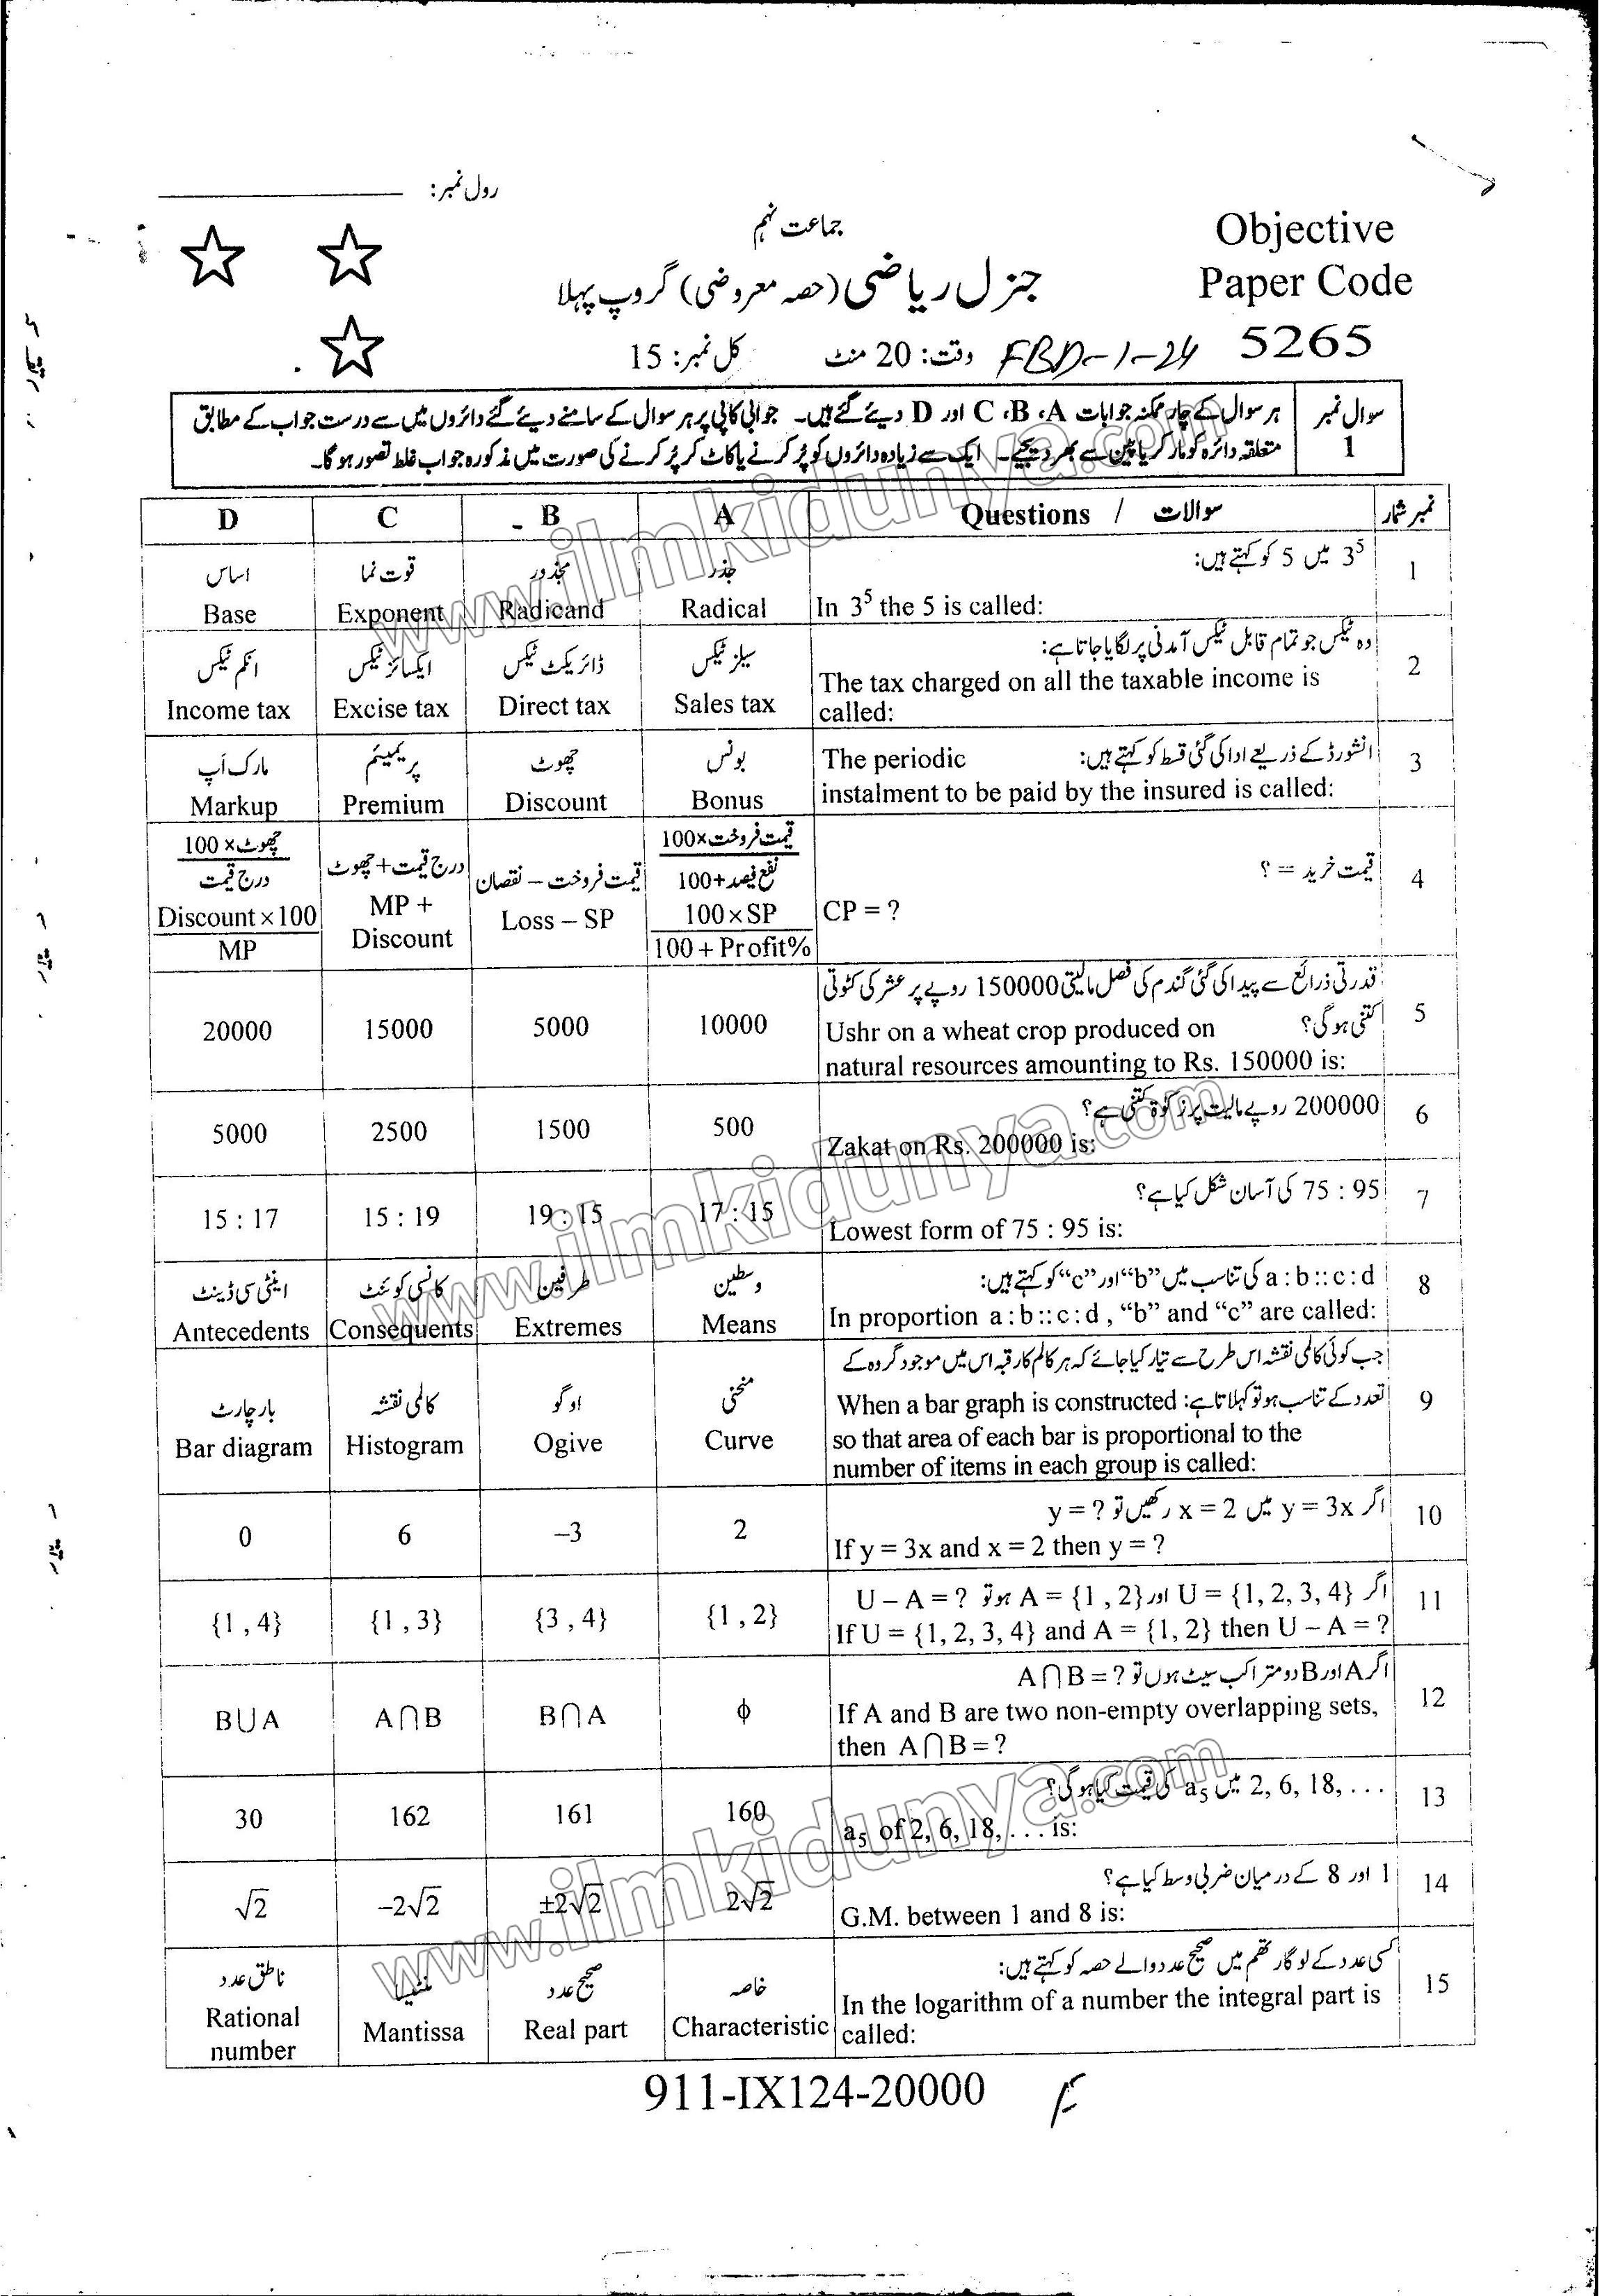 رول نمبر:
جماعت نہم
Objective
Paper Code
5265
جنرل ریاضی (حصہ معروضی) گروپ پہلا
FBD-1-24 وقت: 20 منٹ کل نمبر: 15
سوال نمبر 1
ہر سوال کے چار ممکنہ جوابات A ،B ،C اور D دیئے گئے ہیں۔ جوابی کاپی پر ہر سوال کے سامنے دیئے گئے دائروں میں سے درست جواب کے مطابق
متعلقہ دائرہ کو مارکر یا پین سے بھر دیجیے۔ ایک سے زیادہ دائروں کو پُر کرنے یا کاٹ کر پُر کرنے کی صورت میں مذکورہ جواب غلط تصور ہوگا۔
نمبر شمار Questions / سوالات A B C D
1 3⁵ میں 5 کو کہتے ہیں:
In 3⁵ the 5 is called:
جذر مجذور قوت نما اساس
Radical Radicand Exponent Base
2 وہ ٹیکس جو تمام قابل ٹیکس آمدنی پر لگایا جاتا ہے:
The tax charged on all the taxable income is
called:
سیلز ٹیکس ڈائریکٹ ٹیکس ایکسائز ٹیکس انکم ٹیکس
Sales tax Direct tax Excise tax Income tax
3 انشورڈ کے ذریعے ادا کی گئی قسط کو کہتے ہیں:
The periodic
instalment to be paid by the insured is called:
بونس چھوٹ پریمیئم مارک اَپ
Bonus Discount Premium Markup
4 قیمت خرید = ؟
CP = ?
قیمت فروخت×100 / نفع فیصد+100 قیمت فروخت – نقصان درج قیمت + چھوٹ چھوٹ×100 / درج قیمت
100×SP / 100 + Profit% Loss – SP MP + Discount Discount×100 / MP
5 قدرتی ذرائع سے پیدا کی گئی گندم کی فصل مالیتی 150000 روپے پر عشر کی کٹوتی
کتنی ہوگی؟
Ushr on a wheat crop produced on
natural resources amounting to Rs. 150000 is:
10000 5000 15000 20000
6 200000 روپے مالیت پر زکوٰۃ کتنی ہے؟
Zakat on Rs. 200000 is:
500 1500 2500 5000
7 75 : 95 کی آسان شکل کیا ہے؟
Lowest form of 75 : 95 is:
17 : 15 19 : 15 15 : 19 15 : 17
8 a : b :: c : d کی تناسب میں “b” اور “c” کو کہتے ہیں:
In proportion a : b :: c : d , “b” and “c” are called:
وسطین طرفین کانسی کوئنٹ اینٹی سی ڈینٹ
Means Extremes Consequents Antecedents
9 جب کوئی کالمی نقشہ اس طرح سے تیار کیا جائے کہ ہر کالم کا رقبہ اس میں موجود گروہ کے
تعدد کے تناسب ہو تو کہلاتا ہے:
When a bar graph is constructed
so that area of each bar is proportional to the
number of items in each group is called:
منحنی اوگو کالمی نقشہ بار چارٹ
Curve Ogive Histogram Bar diagram
10 اگر y = 3x میں x = 2 رکھیں تو y = ?
If y = 3x and x = 2 then y = ?
2 –3 6 0
11 اگر U = {1, 2, 3, 4} اور A = {1 , 2} ہو تو U – A = ?
If U = {1, 2, 3, 4} and A = {1, 2} then U – A = ?
{1 , 2} {3 , 4} {1 , 3} {1 , 4}
12 اگر A اور B دو متراکب سیٹ ہوں تو A∩B = ?
If A and B are two non-empty overlapping sets,
then A∩B = ?
φ B∩A A∩B B∪A
13 2, 6, 18, . . . میں a₅ کی قیمت کیا ہوگی؟
a₅ of 2, 6, 18, . . . is:
160 161 162 30
14 1 اور 8 کے درمیان ضربی وسط کیا ہے؟
G.M. between 1 and 8 is:
2√2 ±2√2 –2√2 √2
15 کسی عدد کے لوگارتھم میں صحیح عدد والے حصہ کو کہتے ہیں:
In the logarithm of a number the integral part is
called:
خاصہ صحیح عدد مینٹیسا ناطق عدد
Characteristic Real part Mantissa Rational number
911-IX124-20000
www.ilmkidunya.com
www.ilmkidunya.com
www.ilmkidunya.com